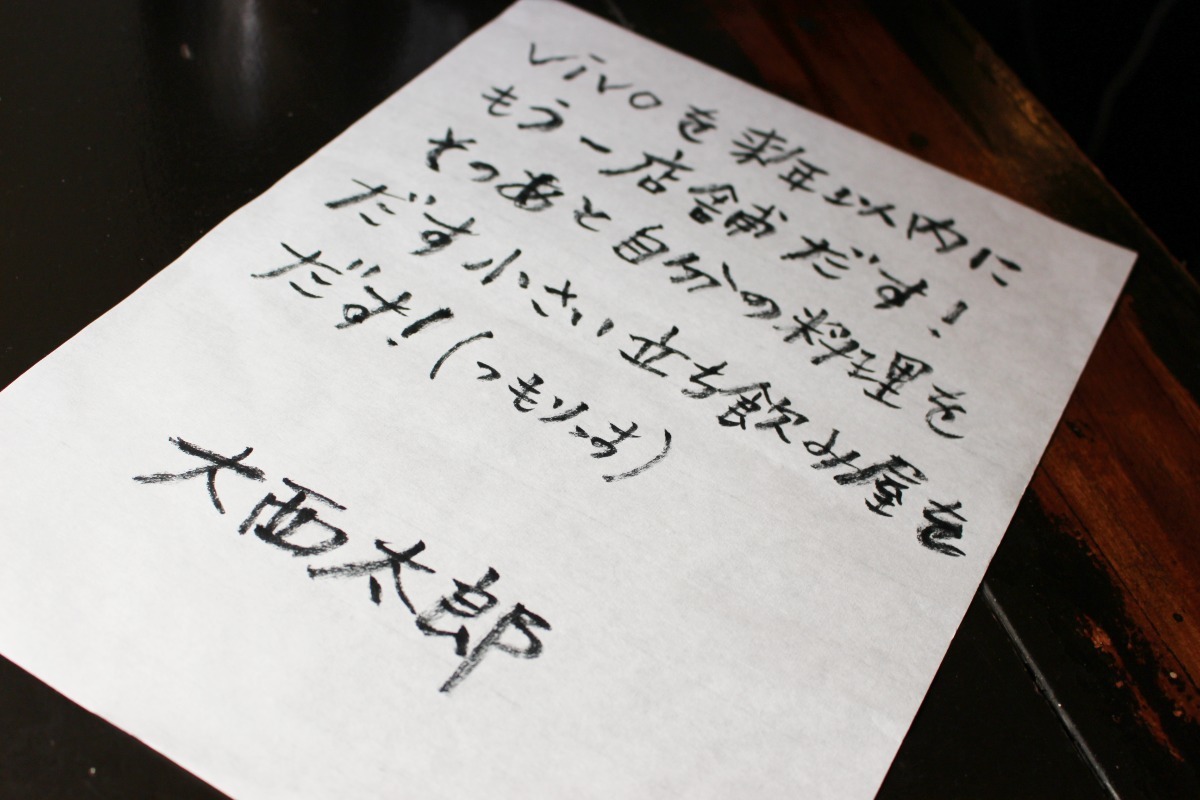 vivoを来年以内に
もう一店舗だす!
そのあと自分の料理を
だす小さい立ち飲み屋を
だす!(つもりっす)
大西太郎